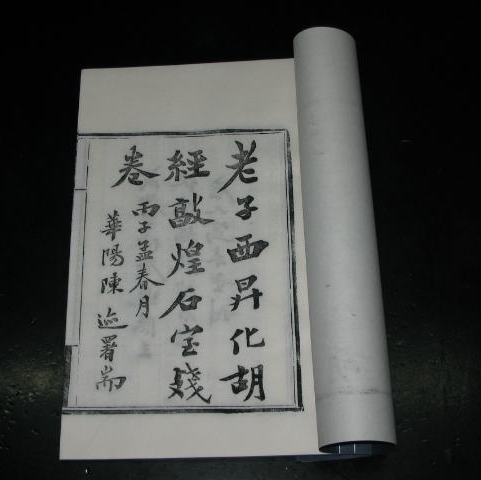 老子西昇化胡
經敦煌石室殘
卷
丙子孟春月
華陽陳迹署耑